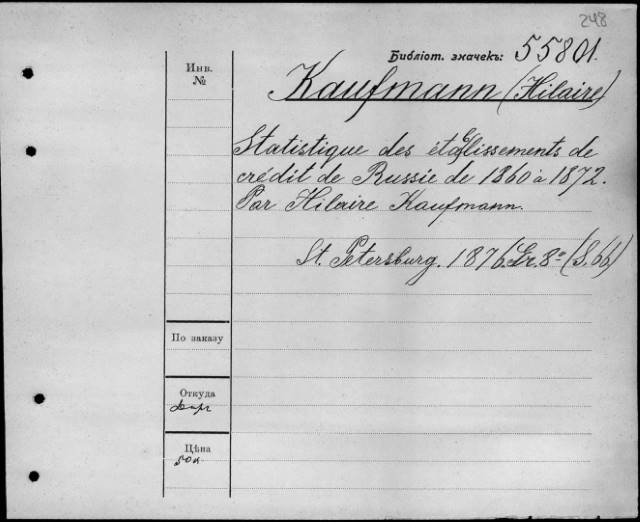 248
Библіот. значекъ: 55801.
Инв.
№
Kaufmann (Hilaire)
Statistique des établissements de
crédit de Russie de 1860 à 1872.
Par Hilaire Kaufmann.
St. Petersburg. 1876. Gr. 8º (S. 66)
По заказу
Откуда
Даръ
Цѣна
50 к